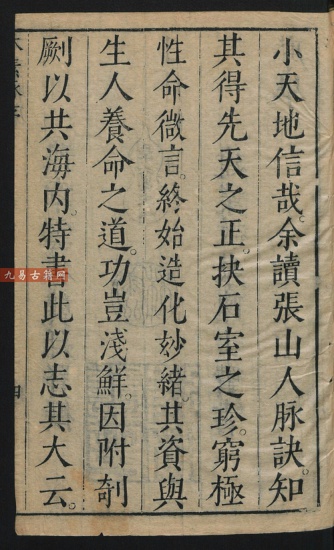 小天地信哉。余讀張山人脉訣。知
其得先天之正。抉石室之珍。窮極
性命微言。終始造化妙緒。其資與
生人養命之道。功豈淺鮮。因附剞
劂以共海内。特書此以志其大云。
四
九易古籍网